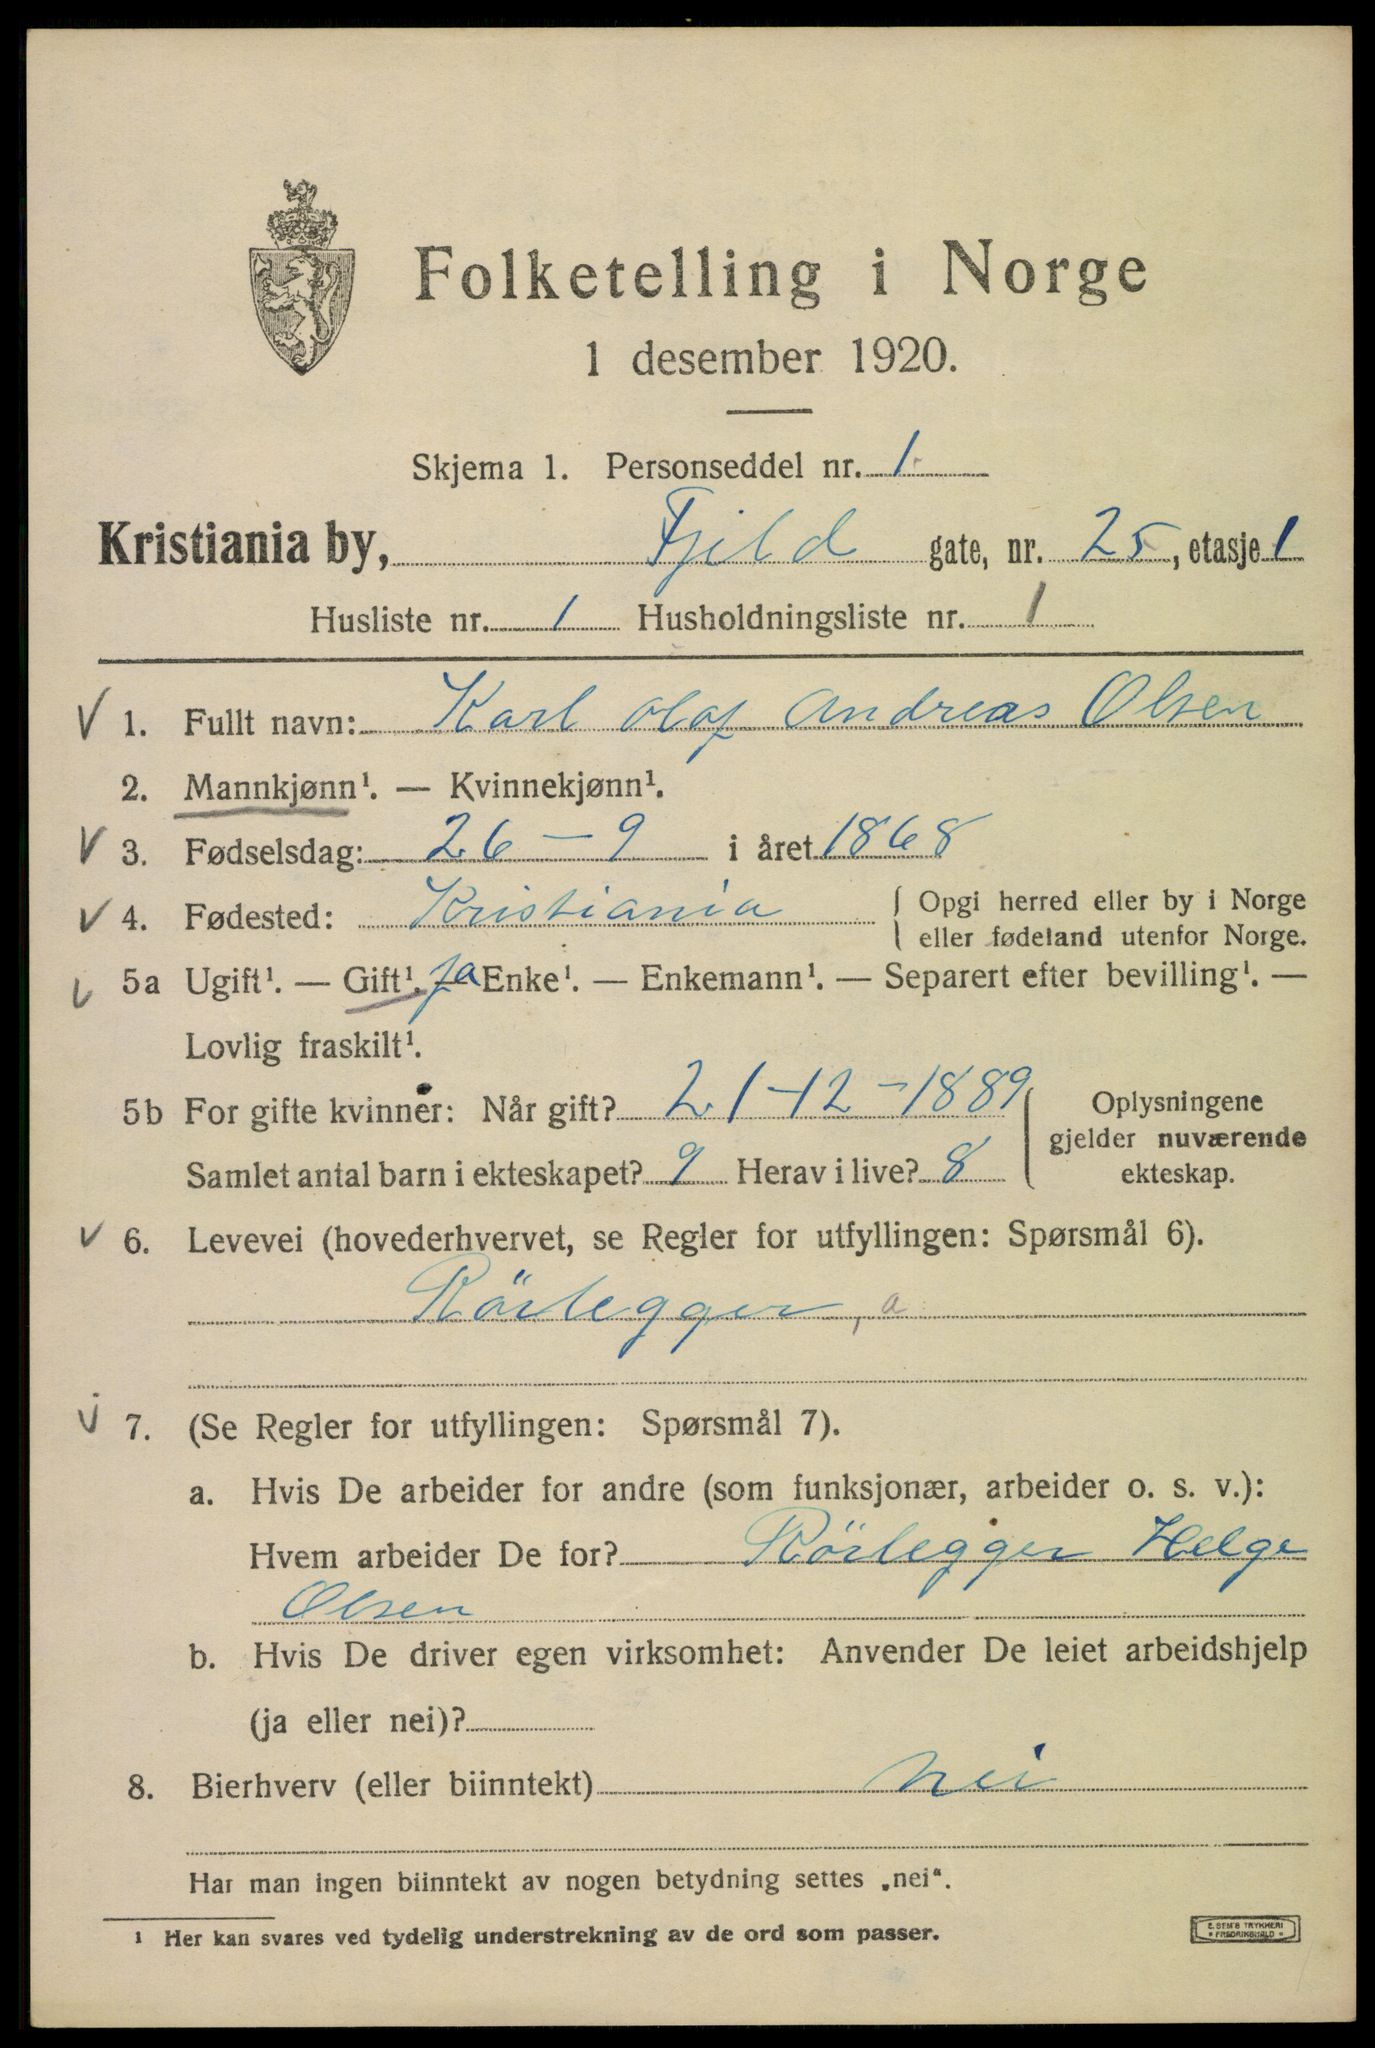 Folketelling i Norge
1 desember 1920.
Skjema 1. Personseddel nr. 1
Kristiania by, Fjeld gate, nr. 25, etasje 1
Husliste nr. 1 Husholdningsliste nr. 1
1. Fullt navn: Karl Olaf Andreas Olsen
2. Mannkjønn¹. — Kvinnekjønn¹.
3. Fødselsdag: 26 – 9 i året 1868
4. Fødested: Kristiania
Opgi herred eller by i Norge
eller fødeland utenfor Norge.
5a Ugift¹. — Gift¹. ja — Enke¹. — Enkemann¹. — Separert efter bevilling¹. —
Lovlig fraskilt¹.
5b For gifte kvinner: Når gift? 21-12-1889
Samlet antal barn i ekteskapet? 9 Herav i live? 8
Oplysningene
gjelder nuværende
ekteskap.
6. Levevei (hovederhvervet, se Regler for utfyllingen: Spørsmål 6).
Rörlegger, a
7. (Se Regler for utfyllingen: Spørsmål 7).
a. Hvis De arbeider for andre (som funksjonær, arbeider o. s. v.):
Hvem arbeider De for? Rörlegger Helge
Olsen
b. Hvis De driver egen virksomhet: Anvender De leiet arbeidshjelp
(ja eller nei)?
8. Bierhverv (eller biinntekt) nei
Har man ingen biinntekt av nogen betydning settes „nei“.
¹ Her kan svares ved tydelig understrekning av de ord som passer.
E. SEM'S TRYKKERI
* FREDRIKSHALD *